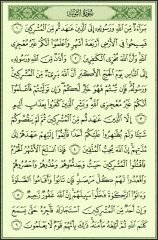 سُورَةُ التَّوْبَةِ
بَرَآءَةٌ مِّنَ اللَّهِ وَرَسُولِهِ إِلَى الَّذِينَ عَاهَدتُّم مِّنَ الْمُشْرِكِينَ ١
فَسِيحُوا فِي الْأَرْضِ أَرْبَعَةَ أَشْهُرٍ وَاعْلَمُوا أَنَّكُمْ غَيْرُ مُعْجِزِي
اللَّهِ وَأَنَّ اللَّهَ مُخْزِي الْكَافِرِينَ ٢ وَأَذَانٌ مِّنَ اللَّهِ وَرَسُولِهِ
إِلَى النَّاسِ يَوْمَ الْحَجِّ الْأَكْبَرِ أَنَّ اللَّهَ بَرِيءٌ مِّنَ الْمُشْرِكِينَ
وَرَسُولُهُ فَإِن تُبْتُمْ فَهُوَ خَيْرٌ لَّكُمْ وَإِن تَوَلَّيْتُمْ فَاعْلَمُوا أَنَّكُمْ
غَيْرُ مُعْجِزِي اللَّهِ وَبَشِّرِ الَّذِينَ كَفَرُوا بِعَذَابٍ أَلِيمٍ
٣ إِلَّا الَّذِينَ عَاهَدتُّم مِّنَ الْمُشْرِكِينَ ثُمَّ لَمْ يَنقُصُوكُمْ
شَيْئًا وَلَمْ يُظَاهِرُوا عَلَيْكُمْ أَحَدًا فَأَتِمُّوا إِلَيْهِمْ عَهْدَهُمْ إِلَى
مُدَّتِهِمْ إِنَّ اللَّهَ يُحِبُّ الْمُتَّقِينَ ٤ فَإِذَا انسَلَخَ الْأَشْهُرُ الْحُرُمُ
فَاقْتُلُوا الْمُشْرِكِينَ حَيْثُ وَجَدتُّمُوهُمْ وَخُذُوهُمْ وَاحْصُرُوهُمْ
وَاقْعُدُوا لَهُمْ كُلَّ مَرْصَدٍ فَإِن تَابُوا وَأَقَامُوا الصَّلَاةَ
وَآتَوُا الزَّكَاةَ فَخَلُّوا سَبِيلَهُمْ إِنَّ اللَّهَ غَفُورٌ رَّحِيمٌ ٥
وَإِنْ أَحَدٌ مِّنَ الْمُشْرِكِينَ اسْتَجَارَكَ فَأَجِرْهُ حَتَّى يَسْمَعَ
كَلَامَ اللَّهِ ثُمَّ أَبْلِغْهُ مَأْمَنَهُ ذَلِكَ بِأَنَّهُمْ قَوْمٌ لَّا يَعْلَمُونَ ٦